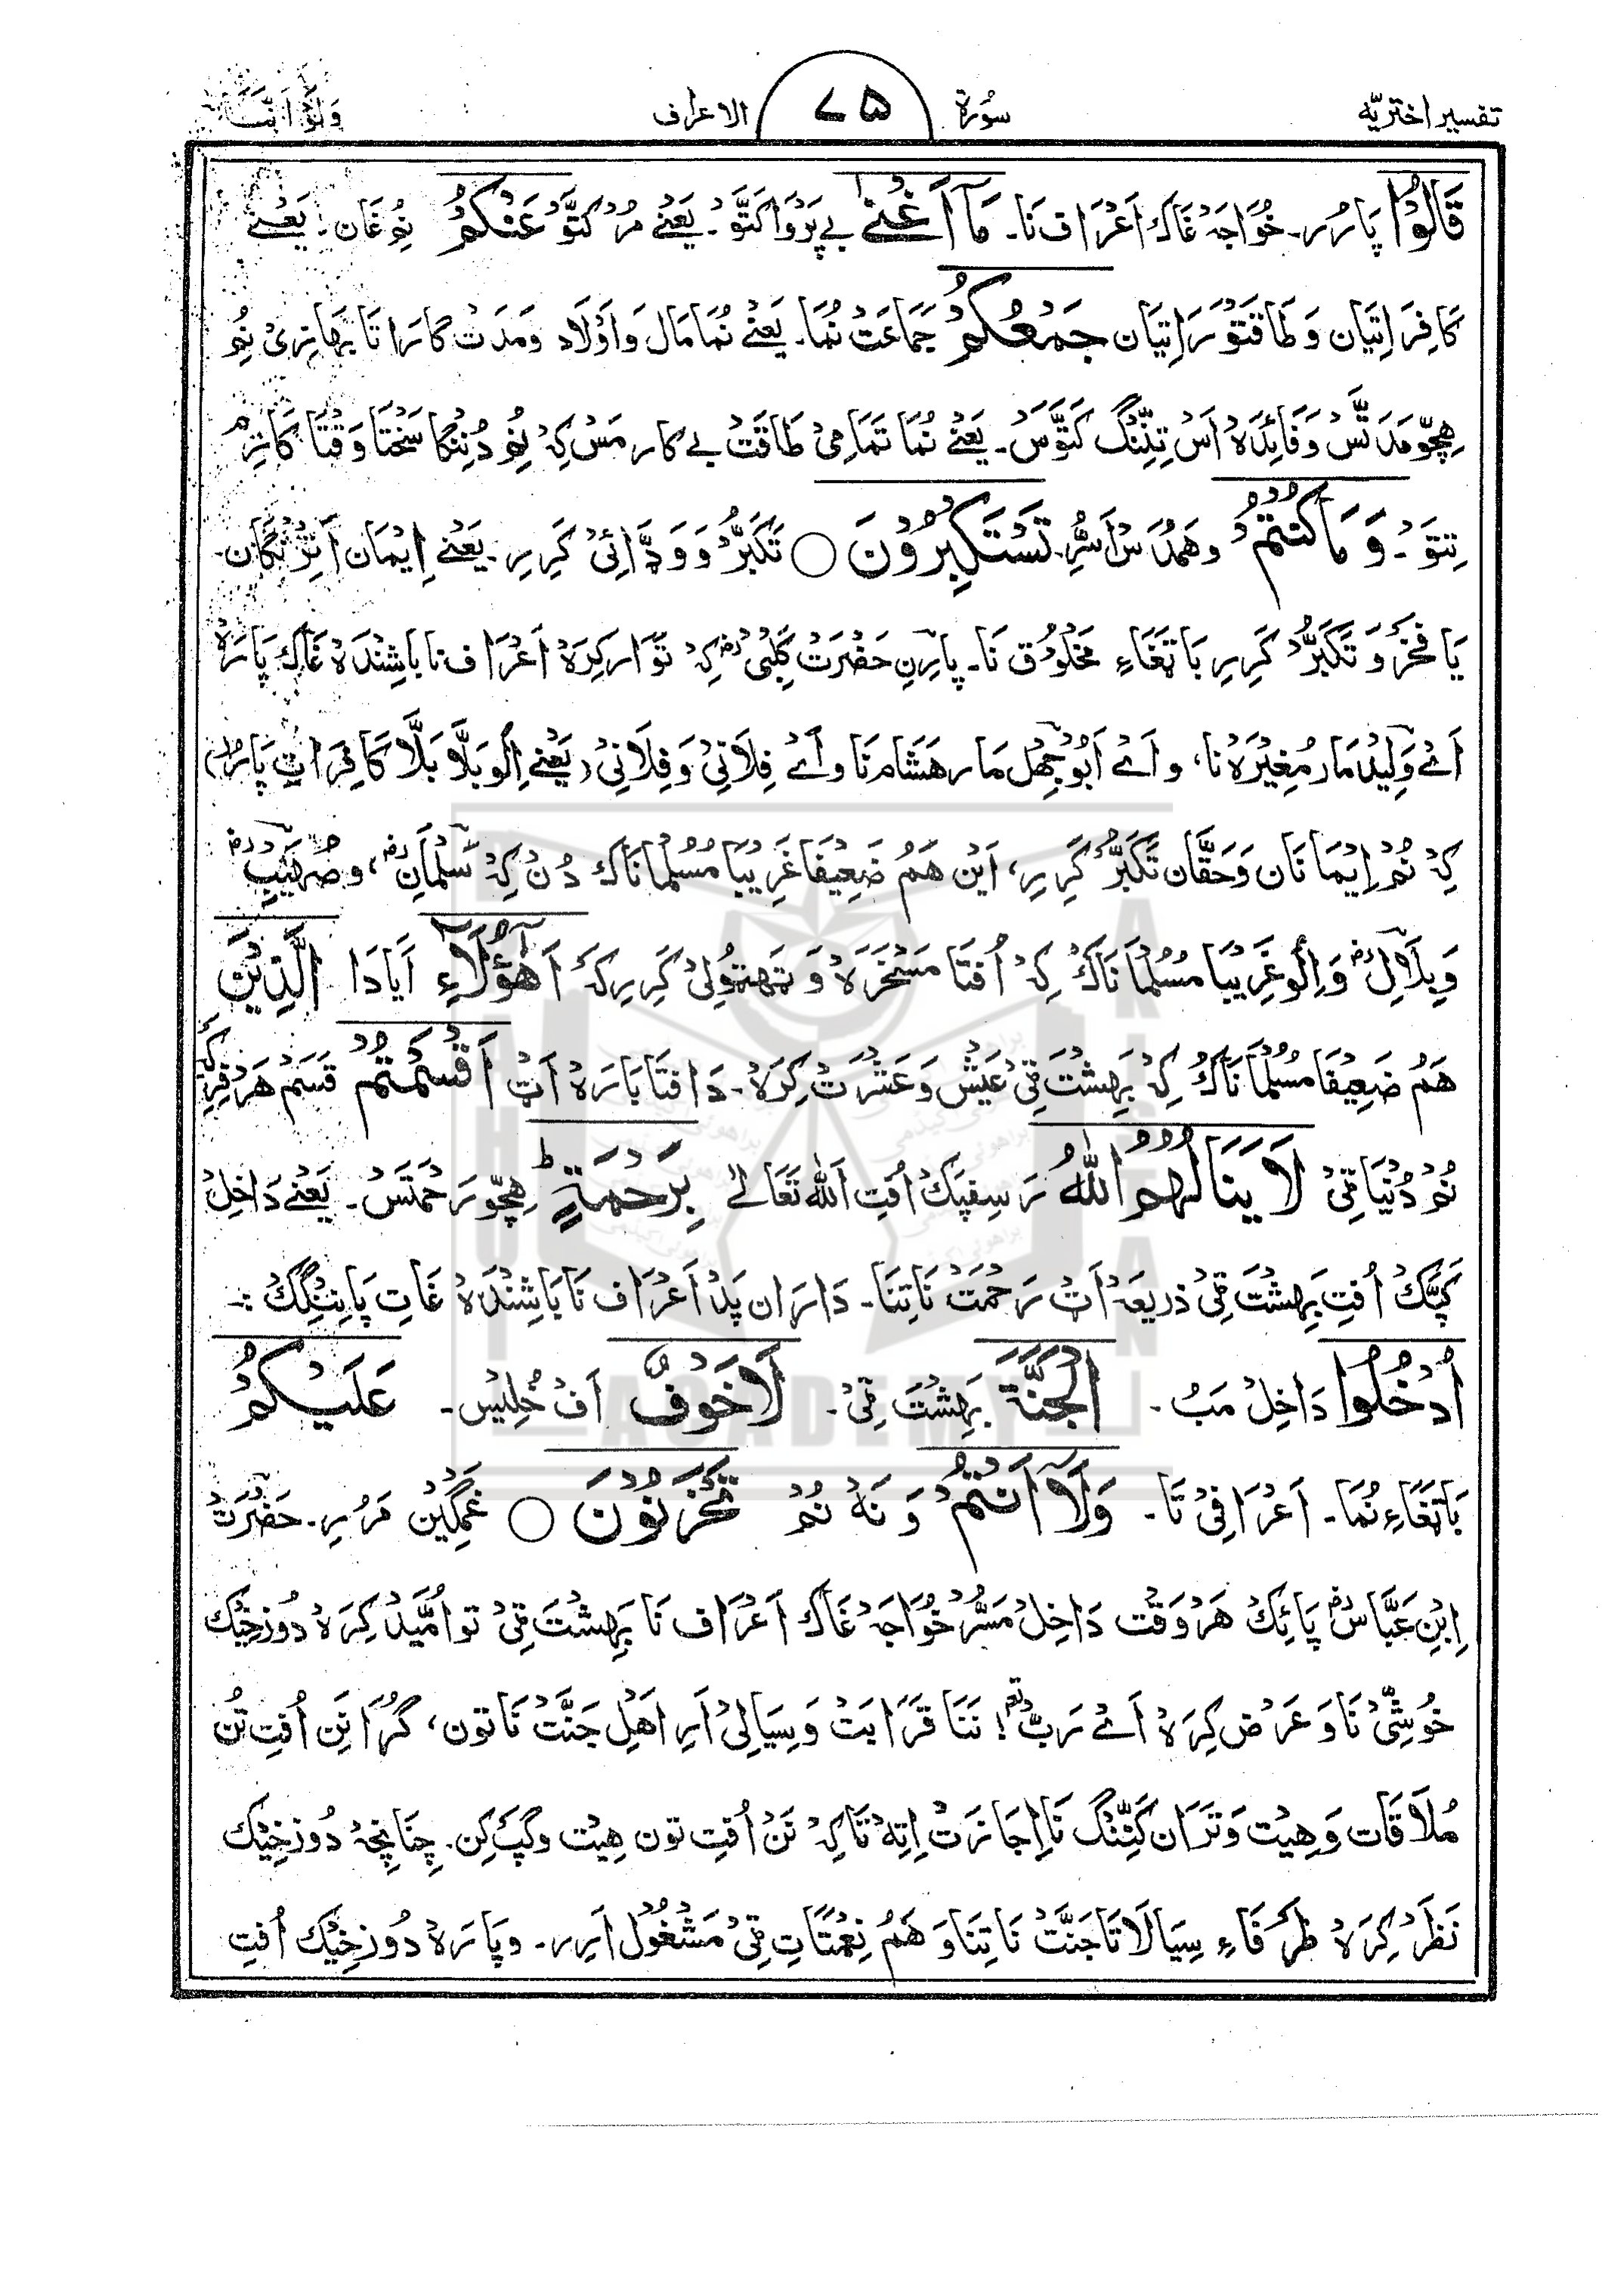 تفسیر اختریّه سُورۃ ۷۵ الاعراف وَلَوْ اَنَّنَا
قَالُوْا پَارُر۔ خُوَاجَہ غَاکْ اَعْرَاف نَا۔ مَآ اَغْنٰے بے پَرْوَا کَتَّوْ۔ یَعْنے مُرْ کَتَّوْ عَنْکُمْ نُم غَان۔ یَعْنے
کَافِرَاتِیَان وَ طَاقَتْوَرَاتِیَان جَمْعُکُمْ جَمَاعَتْ نُمَا۔ یَعْنے نُمَا مَال وَ اَوْلَاد وَ مَدَتْ گارَاتَا بَھَازِیْ نُم
ھِچّو مَدَتَّسْ وَ فَائِدَہ اَسْ تِنِّنْگ کَتَّوَسْ۔ یَعْنے نُمَا تَمَامِیْ طَاقَتْ بے کار مَسْ کِہ نُم دُنْنگا سَخْتَا وَقْتَا کَاتِمْ
تِتَوْ۔ وَ مَا کُنْتُمْ و ھَمْدُسْ اَسُّرِ تَسْتَکْبِرُوْنَ ○ تَکَبُّرْ وَ وَڈَّائِیْ کَرِیرِ۔ یَعْنے اِیْمَان اَتِنْنگان۔
یَا فَخْرْ وَ تَکَبُّرْ کَرِیرِ بَاتَغَاءِ مَخْلُوْق نَا۔ پارِن حَضْرَتْ کَلْبِیْؒ کِہ تَوَار کِرَہ اَعْرَاف نا بَاشِنْدَہ غَاک پَارَہْ
اَے وَلِیْد مَار مُغِیْرَہ نا، و اَے اَبُوْجَھْل مَار ھَشَّام نَا و اَے فِلَانِیْ وَ فِلَانِیْ (یَعْنے اِلَو بَلَّا بَلَّا کَافِرَاتِ پَارُر)
کِہ نُمْ اِیْمَانَان وَ حَقَّان تَکَبُّرْ کَرِیرِ، اَیْن ھَمُ ضَعِیْفَا غَرِیْبَا مُسْلمَانَاک دُنْ کِہ سَلْمَانؓ، و صُھَیْبؓ
وَ بِلَالؓ وَ اِلَو غَرِیْبَا مُسْلمَانَاکْ کِہ اُفْتَا مَسْخَرَہ وَ تَھتُوْلِیْ کَرِیرِ کَہ اَھٰٓؤُلَآءِ اَیَا دَا الَّذِیْنَ
ھَمُ ضَعِیْفَا مُسْلمَانَاکُ کِہ بَھِشْتَ ٹِیْ عَیْش وَ عَشْرَتْ کِرَہ۔ دَافْتَا بَارَہ اَٹ اَقْسَمْتُمْ قَسَمْ ھَرْفِرِ کِہ
نُمْ دُنْیَا ٹِیْ لَا یَنَالُھُمُ اللّٰہُ رَسِفَپَکْ اُفْتِ اَللّٰہ تَعَالےٰ بِرَحْمَۃٍ ط ھِچّو رَحْمَتَسْ۔ یَعْنے دَاخِلْ
کَپَّکْ اُفْتِ بَھِشْتَ ٹِیْ ذَریعَہ اَٹْ رَحْمَتْ نَا تِنَا۔ دَارَان پَدْ اَعْرَاف نَا بَاشِنْدَہ غَاتِ پَانِنْگِکْ :-
اُدْخُلُوا دَاخِلْ مَبُ۔ الْجَنَّۃَ بَھِشْتَ ٹِیْ۔ لَا خَوْفٌ اَفْ خُلِیْس۔ عَلَیْکُمْ
بَاتَغَاءِ نُمَا۔ اَعْرَافِیْ تَا۔ وَلَآ اَنْتُمْ وَ نَہْ نُمْ تَحْزَنُوْنَ ○ غَمْگِیْن مَرُرِ۔ حَضْرَتْ
اِبْنِ عَبَّاسؓ پَائِکْ ھَرْوَقْت دَاخِلْ مَسُّرْ خُوَاجَہ غَاک اَعْرَاف نَا بَھِشْتَ ٹِیْ تو اُمَّیْدْ کِرَہ دُوزَخِیْک
خُوشِّیْ نَا وَ عَرَض کِرَہ اَے رَبّ! نَنَا قَرَابَت وَ سِیَالِیْ اَرِ اَھْلِ جَنَّتْ نَا تون، گُڑَا نَن اُفْتِ تُن
مُلَاقَات وَ ھِیْت وَ تَرَان کَنِّنْگ نَا اِجَازَتْ اِتِہ تَاکِہ نَنْ اُفْتِ تون ھِیْت و گپ کِن۔ چِنَانچِہ دُوزَخِیْک
نَظَرْ کِرَہ طَرَفَاءِ سِیَالَاتَا جَنَّتْ نَا تِنَا وَ ھَمُ نِعْمَتَاتِ ٹِیْ مَشْغُول اَرِر۔ و پَارَہْ دُوزَخِیْک اُفْتِ
ACADEMY